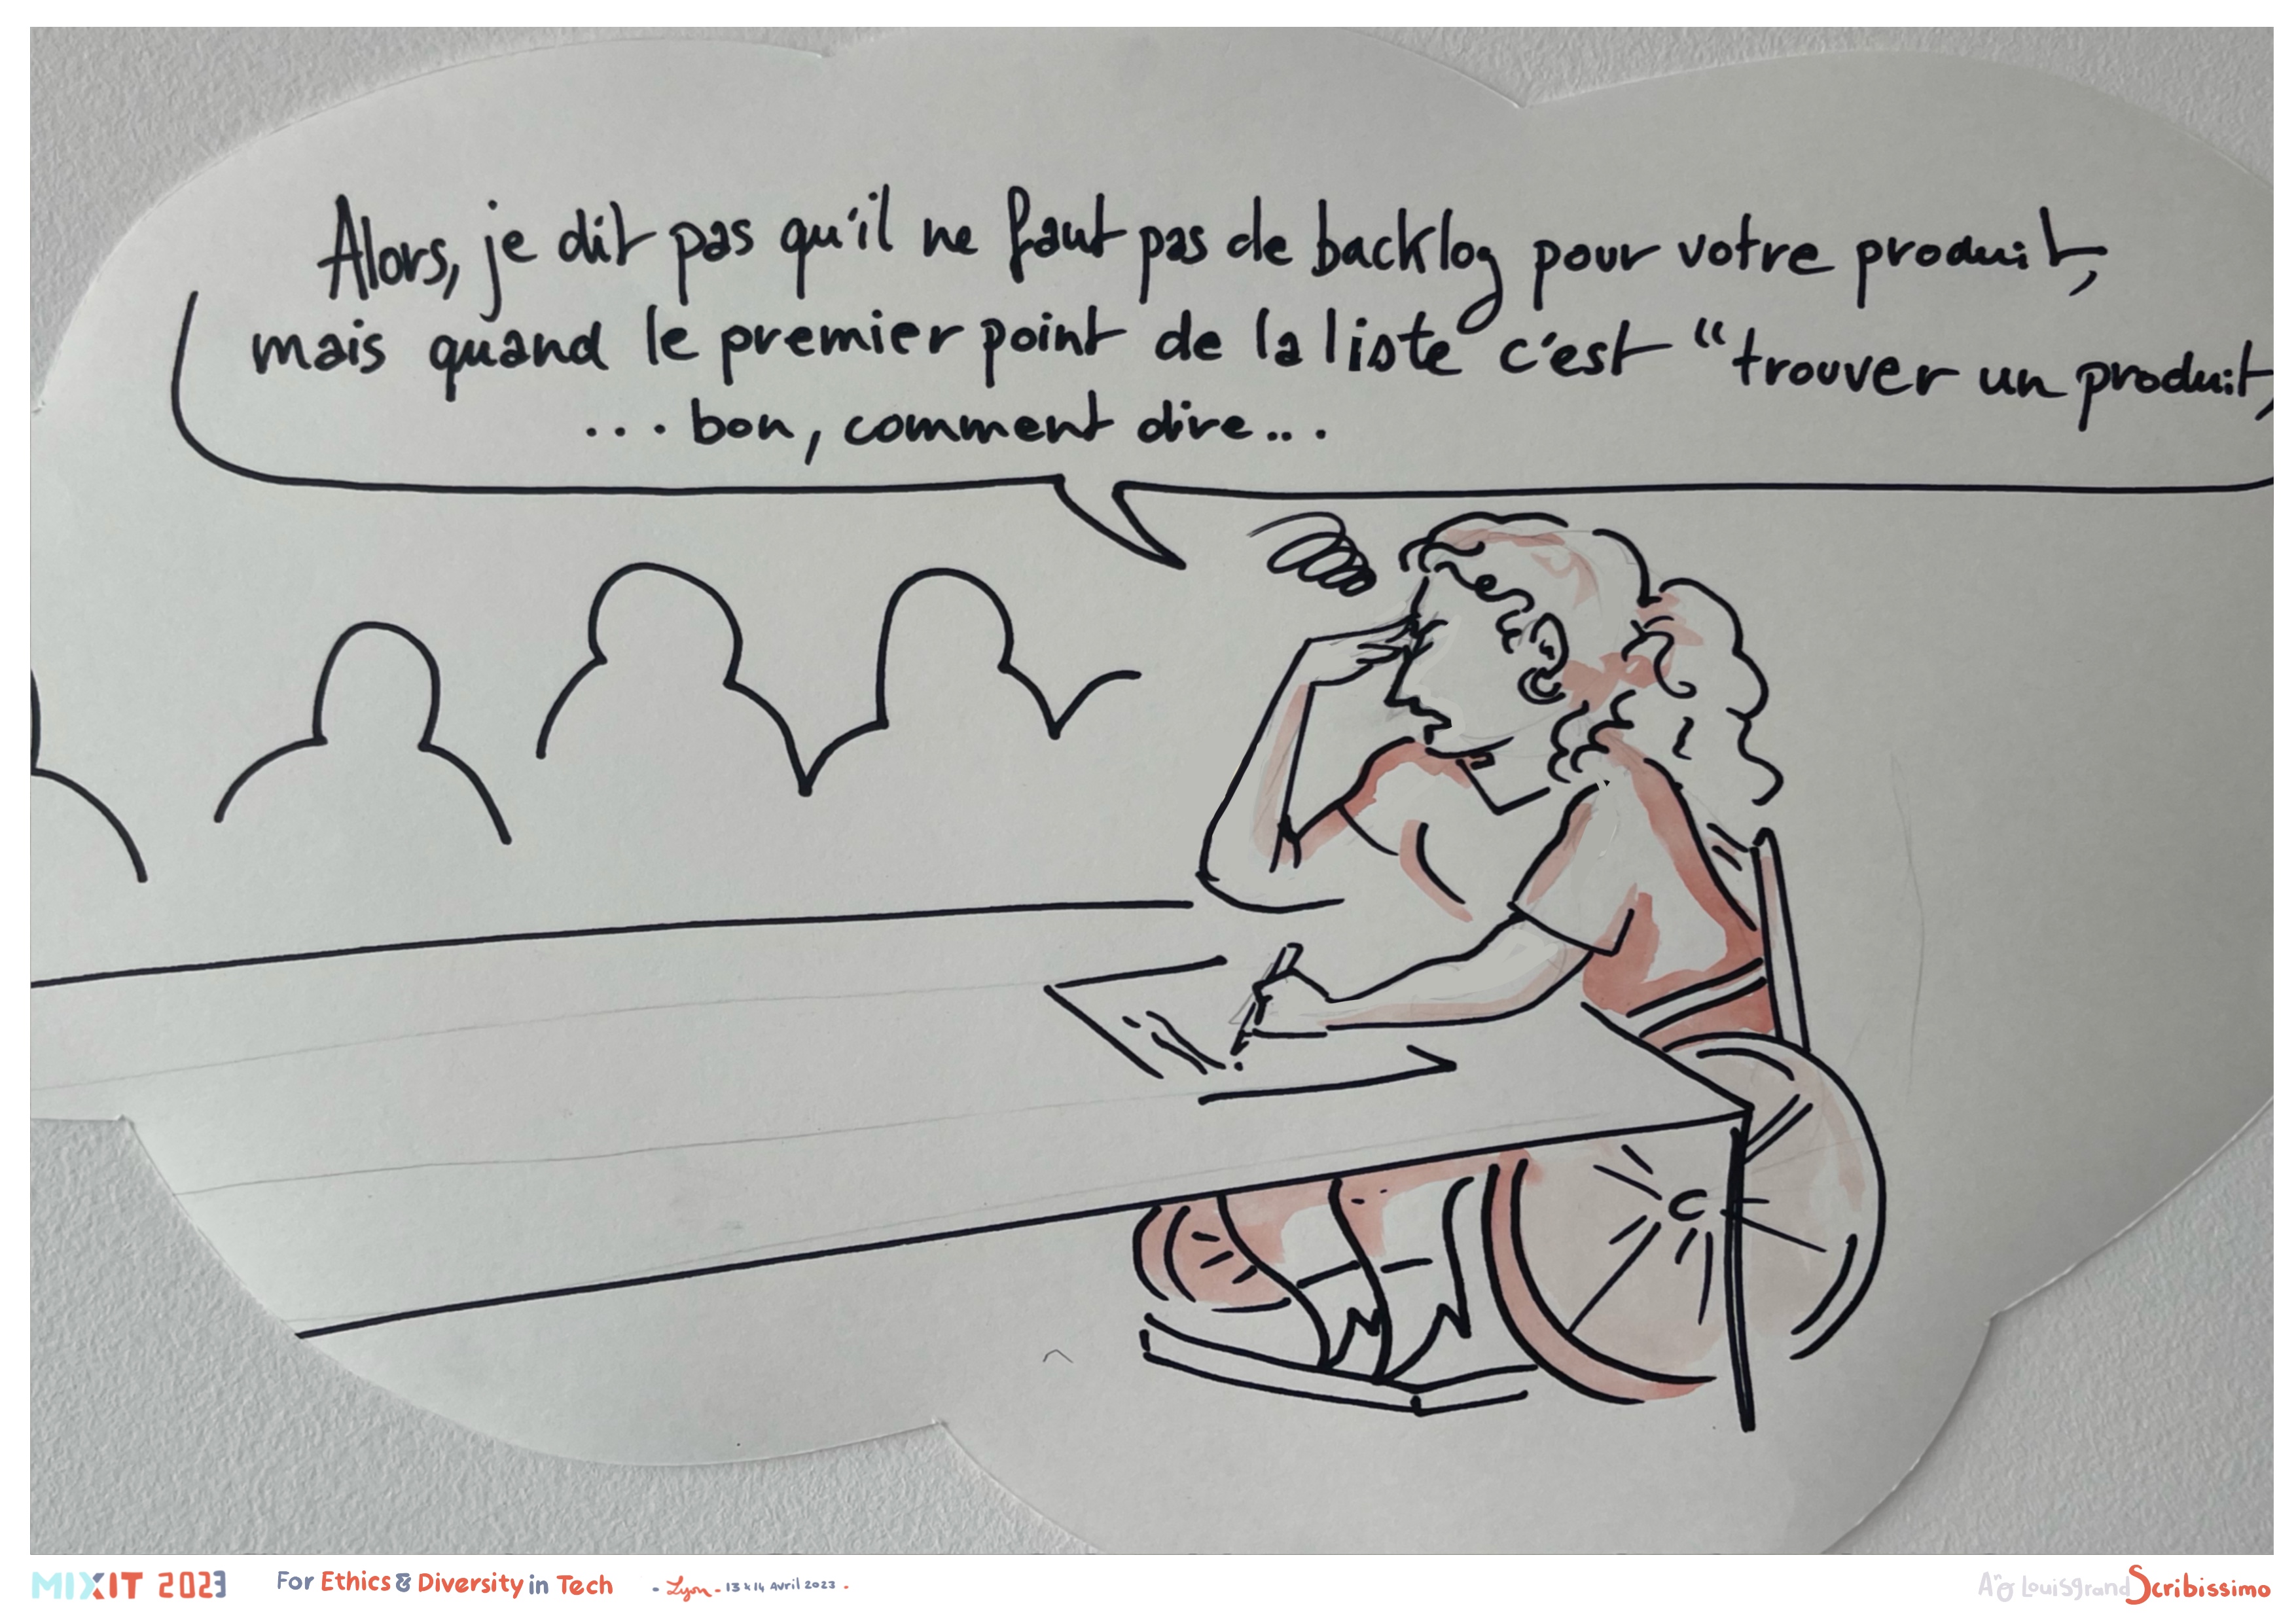 Alors, je dit pas qu'il ne faut pas de backlog pour votre produit,
mais quand le premier point de la liste c'est "trouver un produit,
... bon, comment dire...
MIXIT 2023 For Ethics & Diversity in Tech - Lyon - 13 & 14 Avril 2023 -
Louisgrand Scribissimo